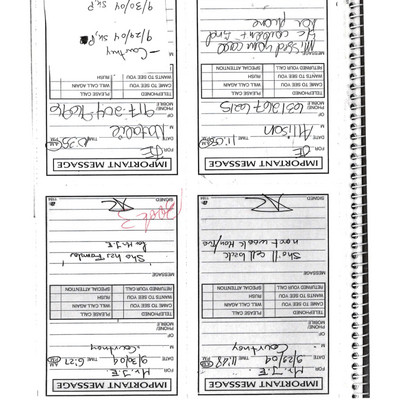 IMPORTANT MESSAGE
FOR Mr. J.E
DATE 9/29/04 TIME
M Courtney
OF
PHONE
MOBILE
TELEPHONED PLEASE CALL
CAME TO SEE YOU WILL CALL AGAIN
WANTS TO SEE YOU RUSH
RETURNED YOUR CALL SPECIAL ATTENTION
MESSAGE
She'll call back
next week Mon/Tue
SIGNED
IMPORTANT MESSAGE
FOR Mr. J.E
DATE 9/30/04 TIME 6:27
M Courtney
OF
PHONE
MOBILE
TELEPHONED PLEASE CALL
CAME TO SEE YOU WILL CALL AGAIN
WANTS TO SEE YOU RUSH
RETURNED YOUR CALL SPECIAL ATTENTION
MESSAGE
She has
Mr. J.E
SIGNED
IMPORTANT MESSAGE
FOR JE
DATE TIME 11:05
M Allison
OF
PHONE
MOBILE
TELEPHONED PLEASE CALL
CAME TO SEE YOU WILL CALL AGAIN
WANTS TO SEE YOU RUSH
RETURNED YOUR CALL SPECIAL ATTENTION
Missed your call
b/c couldn't find
her phone
IMPORTANT MESSAGE
FOR JE
DATE TIME
M Natalie
OF
PHONE
MOBILE
TELEPHONED PLEASE CALL
CAME TO SEE YOU WILL CALL AGAIN
WANTS TO SEE YOU RUSH
RETURNED YOUR CALL SPECIAL ATTENTION
- Courtney
9/29/04
9/30/04